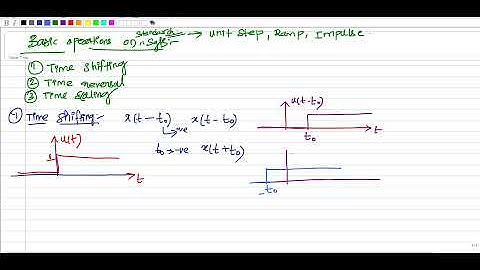 Basic operations on standard → Unit Step, Ramp, Impulse
① Time shifting
② Time reversal
③ Time scaling
→) Time shifting:- x(t-t₀) x(t-t₀)
↳+ve
t₀ → -ve x(t+t₀)
u(t-t₀)
t₀ t
u(t)
1
t
-t₀